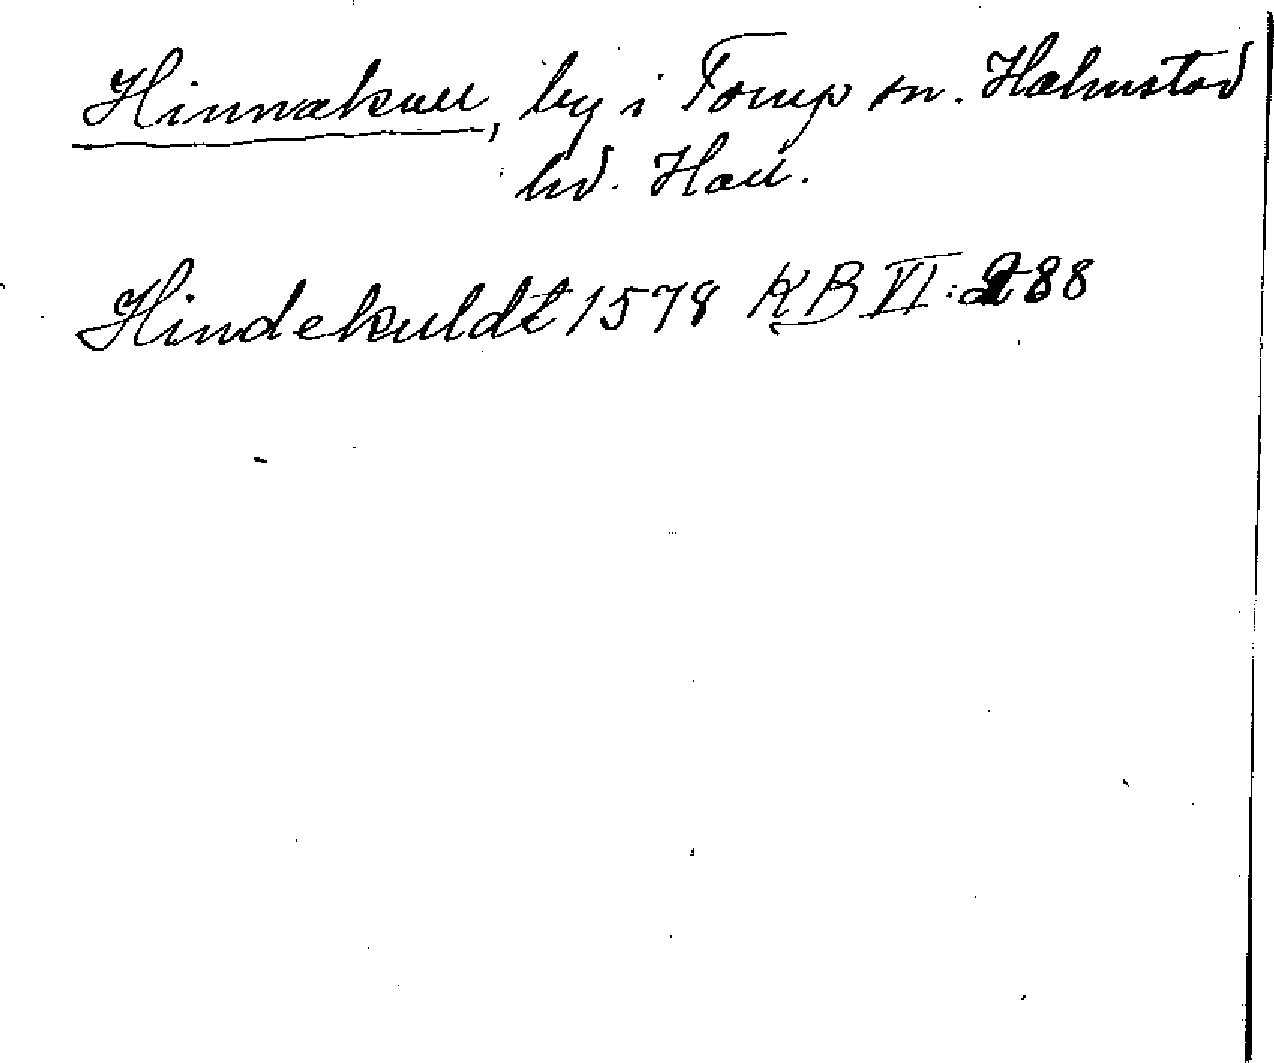 Hinnakull, by i Torup sn. Halmstad
hd. Hall.
Hindekuldt 1578 KB VI:288